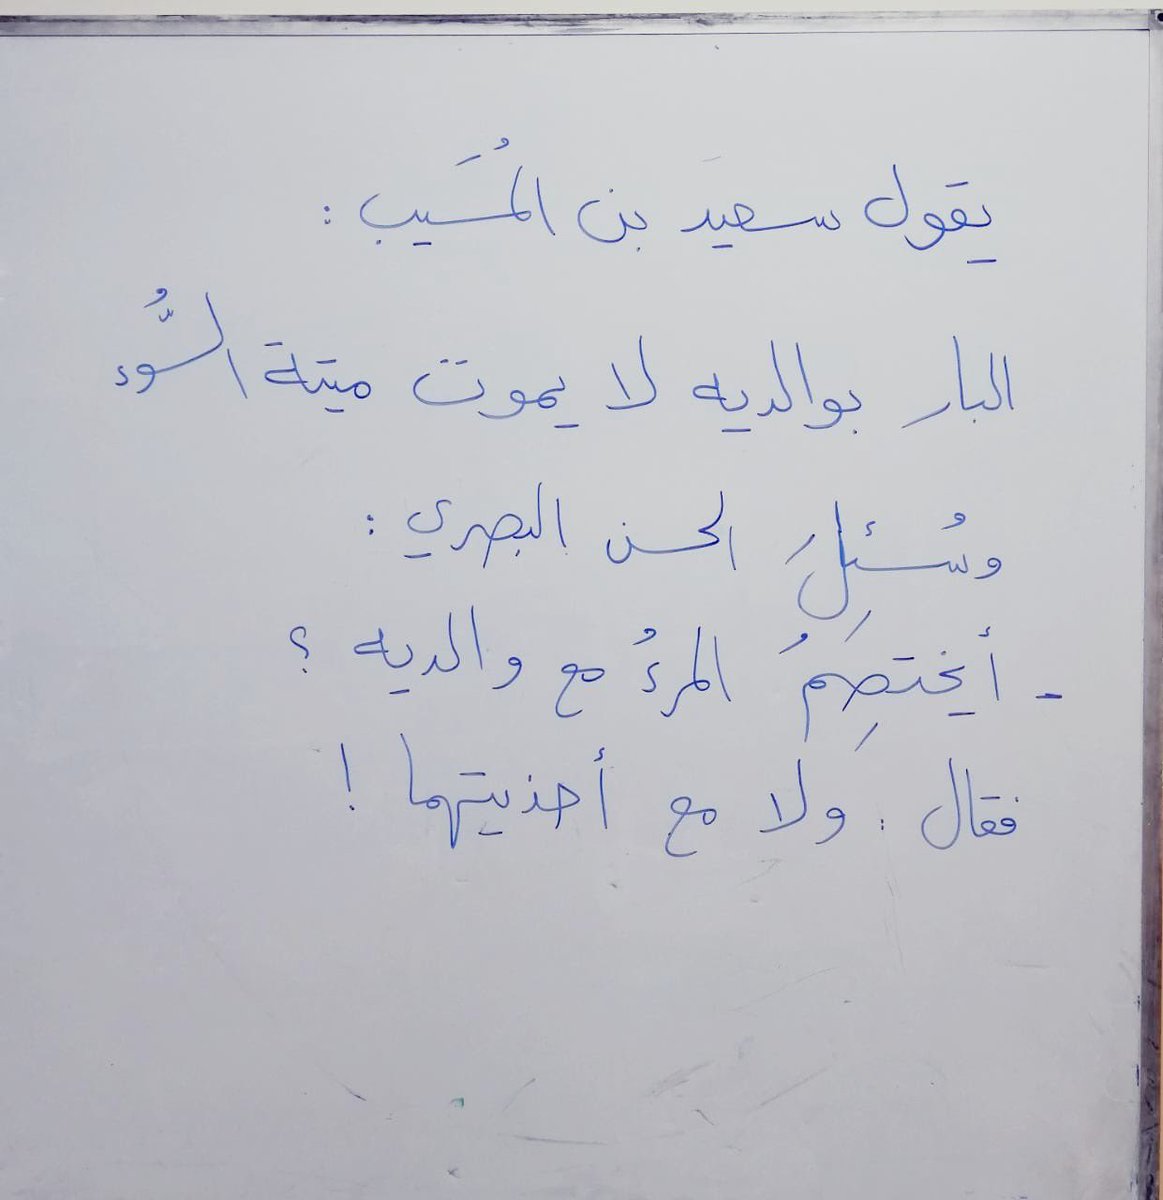 يقول سعيد بن المُسَيب :
البار بوالديه لا يموت ميتة السُّوء
وسُئِلَ الحسن البصري :
- أيختصِمُ المرءُ مع والديه ؟
فقال : ولا مع أحذيتهما !